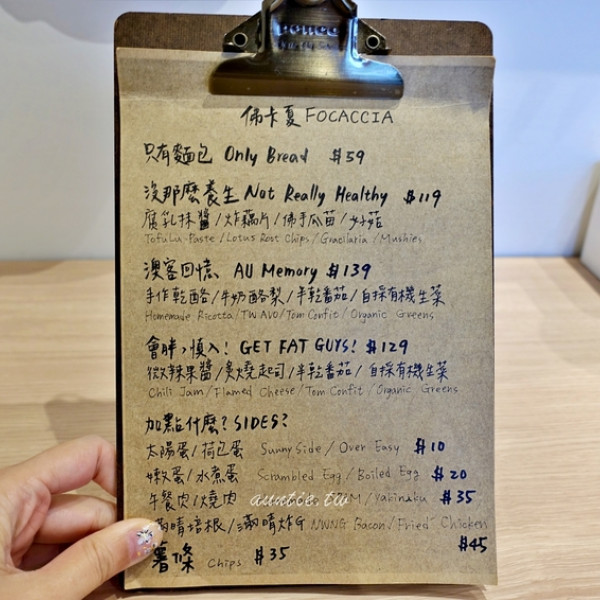 佛卡夏 FOCACCIA
只有麵包 Only Bread $59
沒那麼養生 Not Really Healthy $119
腐乳抹醬/炸藕片/佛手瓜苗/好菇
Tofulu Paste/Lotus Root Chips/Gracilaria/Mushies
澳客回憶 AU Memory $139
手作乾酪/牛奶酪梨/半乾番茄/自採有機生菜
Homemade Ricotta/TW AVO/Tom Confit/Organic Greens
會胖,慎入! GET FAT GUYS! $129
微辣果醬/炙燒起司/半乾番茄/自採有機生菜
Chili Jam/Flamed Cheese/Tom Confit/Organic Greens
加點什麼? SIDES?
太陽蛋/荷包蛋 Sunny Side/Over Easy $10
嫩蛋/水煮蛋 Scrambled Egg/Boiled Egg $20
午餐肉/燒肉 /Yakiniku $35
auntie.tw
培根/ NWNG Bacon/Fried Chicken
$45
薯條 Chips $35